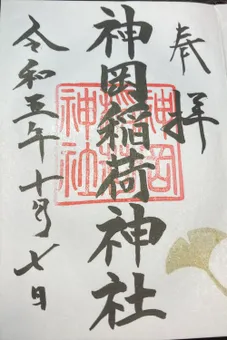 奉拝
神岡稲荷神社
令和五年十月七日
神岡稲荷神社